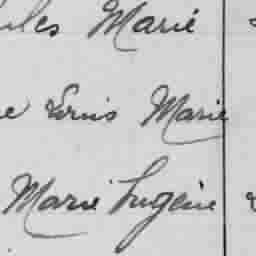 Marie
Louis Marie
Marie Eugène